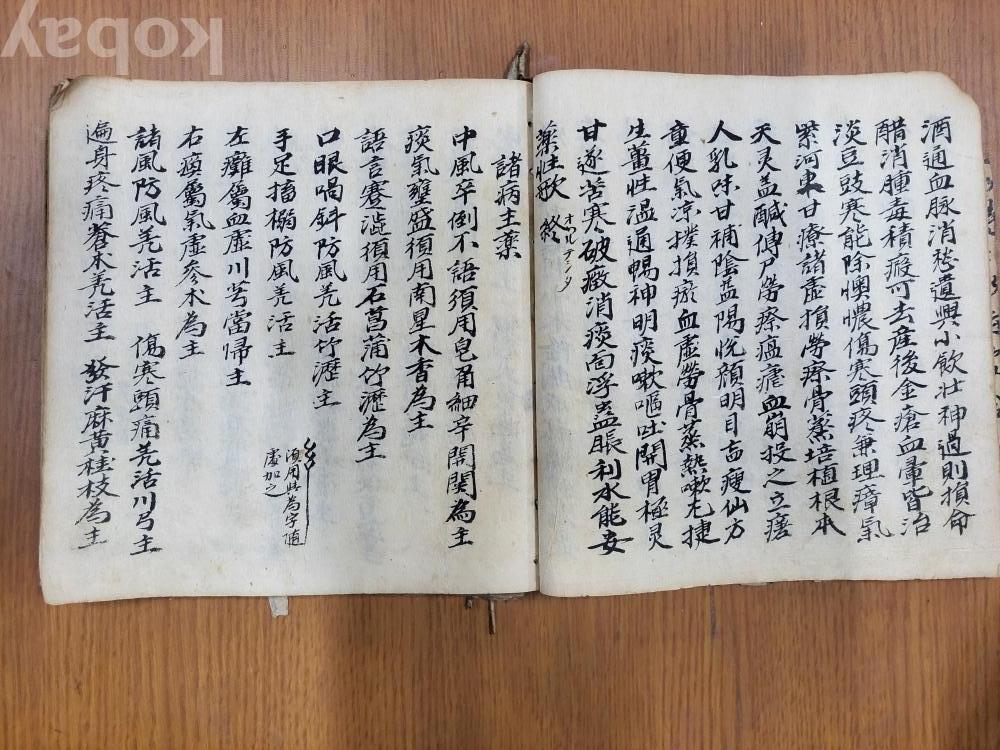 酒通血脉消愁遣興小飲壮神過則損命
醋消腫毒積瘕可去産後金瘡血暈皆治
淡豆豉寒能除懊憹傷寒頭疼兼理瘴氣
紫河車甘療諸虚損勞瘵骨蒸培植根本
天灵盖鹹傳尸勞瘵瘟瘧血崩投之立瘥
人乳味甘補陰益陽悦顔明目羸瘦仙方
童便氣凉撲損瘀血虚勞骨蒸熱嗽尤捷
生薑性温通暢神明痰嗽嘔吐開胃極灵
甘遂苦寒破癥消痰面浮蠱脹利水能安
藥性歌 終
諸病主藥
中風卒倒不語須用皂角細辛開関為主
痰氣壅盛須用南星木香為主
語言蹇澁須用石菖蒲竹瀝為主
口眼喎斜防風羌活竹瀝主
手足搐搦防風羌活主
左癱屬血虚川芎當歸主
右瘓屬氣虚參朮為主
諸風防風羌活主 傷寒頭痛羌活川芎主
遍身疼痛蒼朮羌活主 發汗麻黄桂枝為主
須用此為字随
處加之
kobay